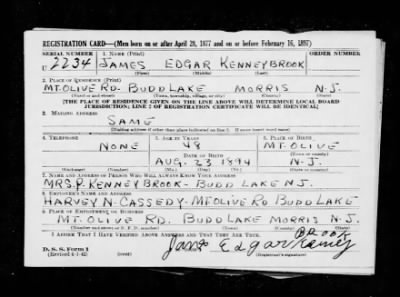 REGISTRATION CARD—(Men born on or after April 28, 1877 and on or before February 16, 1897)
SERIAL NUMBER 1. NAME (Print) ORDER NUMBER
U 2234 JAMES EDGAR KENNEYBROOK
(First) (Middle) (Last)
2. PLACE OF RESIDENCE (Print)
MT. OLIVE RD. BUDD LAKE MORRIS N.J.
(Number and street) (Town, township, village, or city) (County) (State)
[THE PLACE OF RESIDENCE GIVEN ON THE LINE ABOVE WILL DETERMINE LOCAL BOARD
JURISDICTION; LINE 2 OF REGISTRATION CERTIFICATE WILL BE IDENTICAL]
3. MAILING ADDRESS
SAME
(Mailing address if other than place indicated on line 2. If same insert word same)
4. TELEPHONE 5. AGE IN YEARS 6. PLACE OF BIRTH
NONE 48 MT. OLIVE
DATE OF BIRTH (Town or county)
AUG. 23 1894 N.J.
(Exchange) (Number) (Mo.) (Day) (Yr.) (State or country)
7. NAME AND ADDRESS OF PERSON WHO WILL ALWAYS KNOW YOUR ADDRESS
MRS. P. KENNEY BROOK - BUDD LAKE N.J.
8. EMPLOYER'S NAME AND ADDRESS
HARVEY N. CASSEDY - MT OLIVE RD BUDD LAKE
9. PLACE OF EMPLOYMENT OR BUSINESS
MT. OLIVE RD. BUDD LAKE MORRIS N.J.
(Number and street or R. F. D. number) (Town) (County) (State)
I AFFIRM THAT I HAVE VERIFIED ABOVE ANSWERS AND THAT THEY ARE TRUE.
D. S. S. Form 1
(Revised 4-1-42) (over) (Registrant's signature)
James Edgar Kenney
BROOK